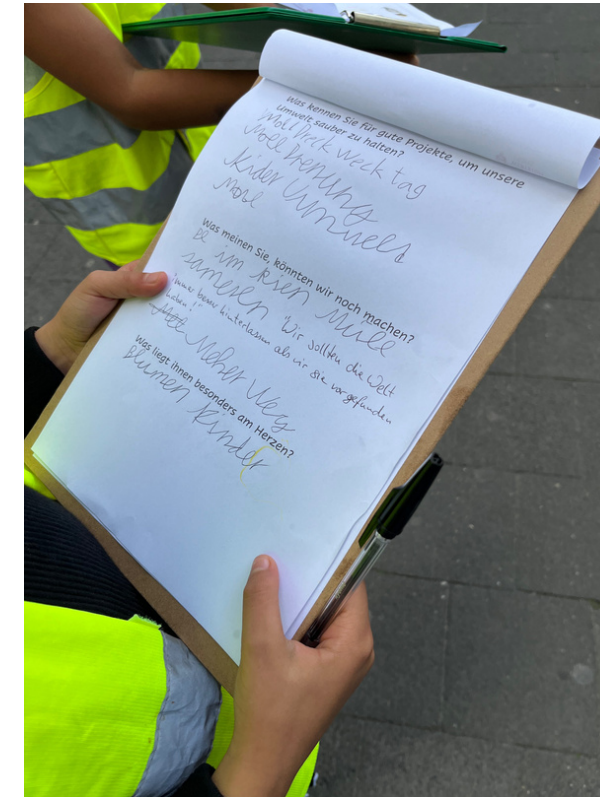 Was kennen Sie für gute Projekte, um unsere
Umwelt sauber zu halten?
Moll Dreck weck tag
Moll Drenung
Kider Umwelt
Was meinen Sie, könnten wir noch machen?
Be im ksen Mülle
sameren Wir sollten die Welt
immer besser hinterlassen als wir sie vorgefunden
haben!"
Mehr Weg
Was liegt Ihnen besonders am Herzen?
Blumen Kinder